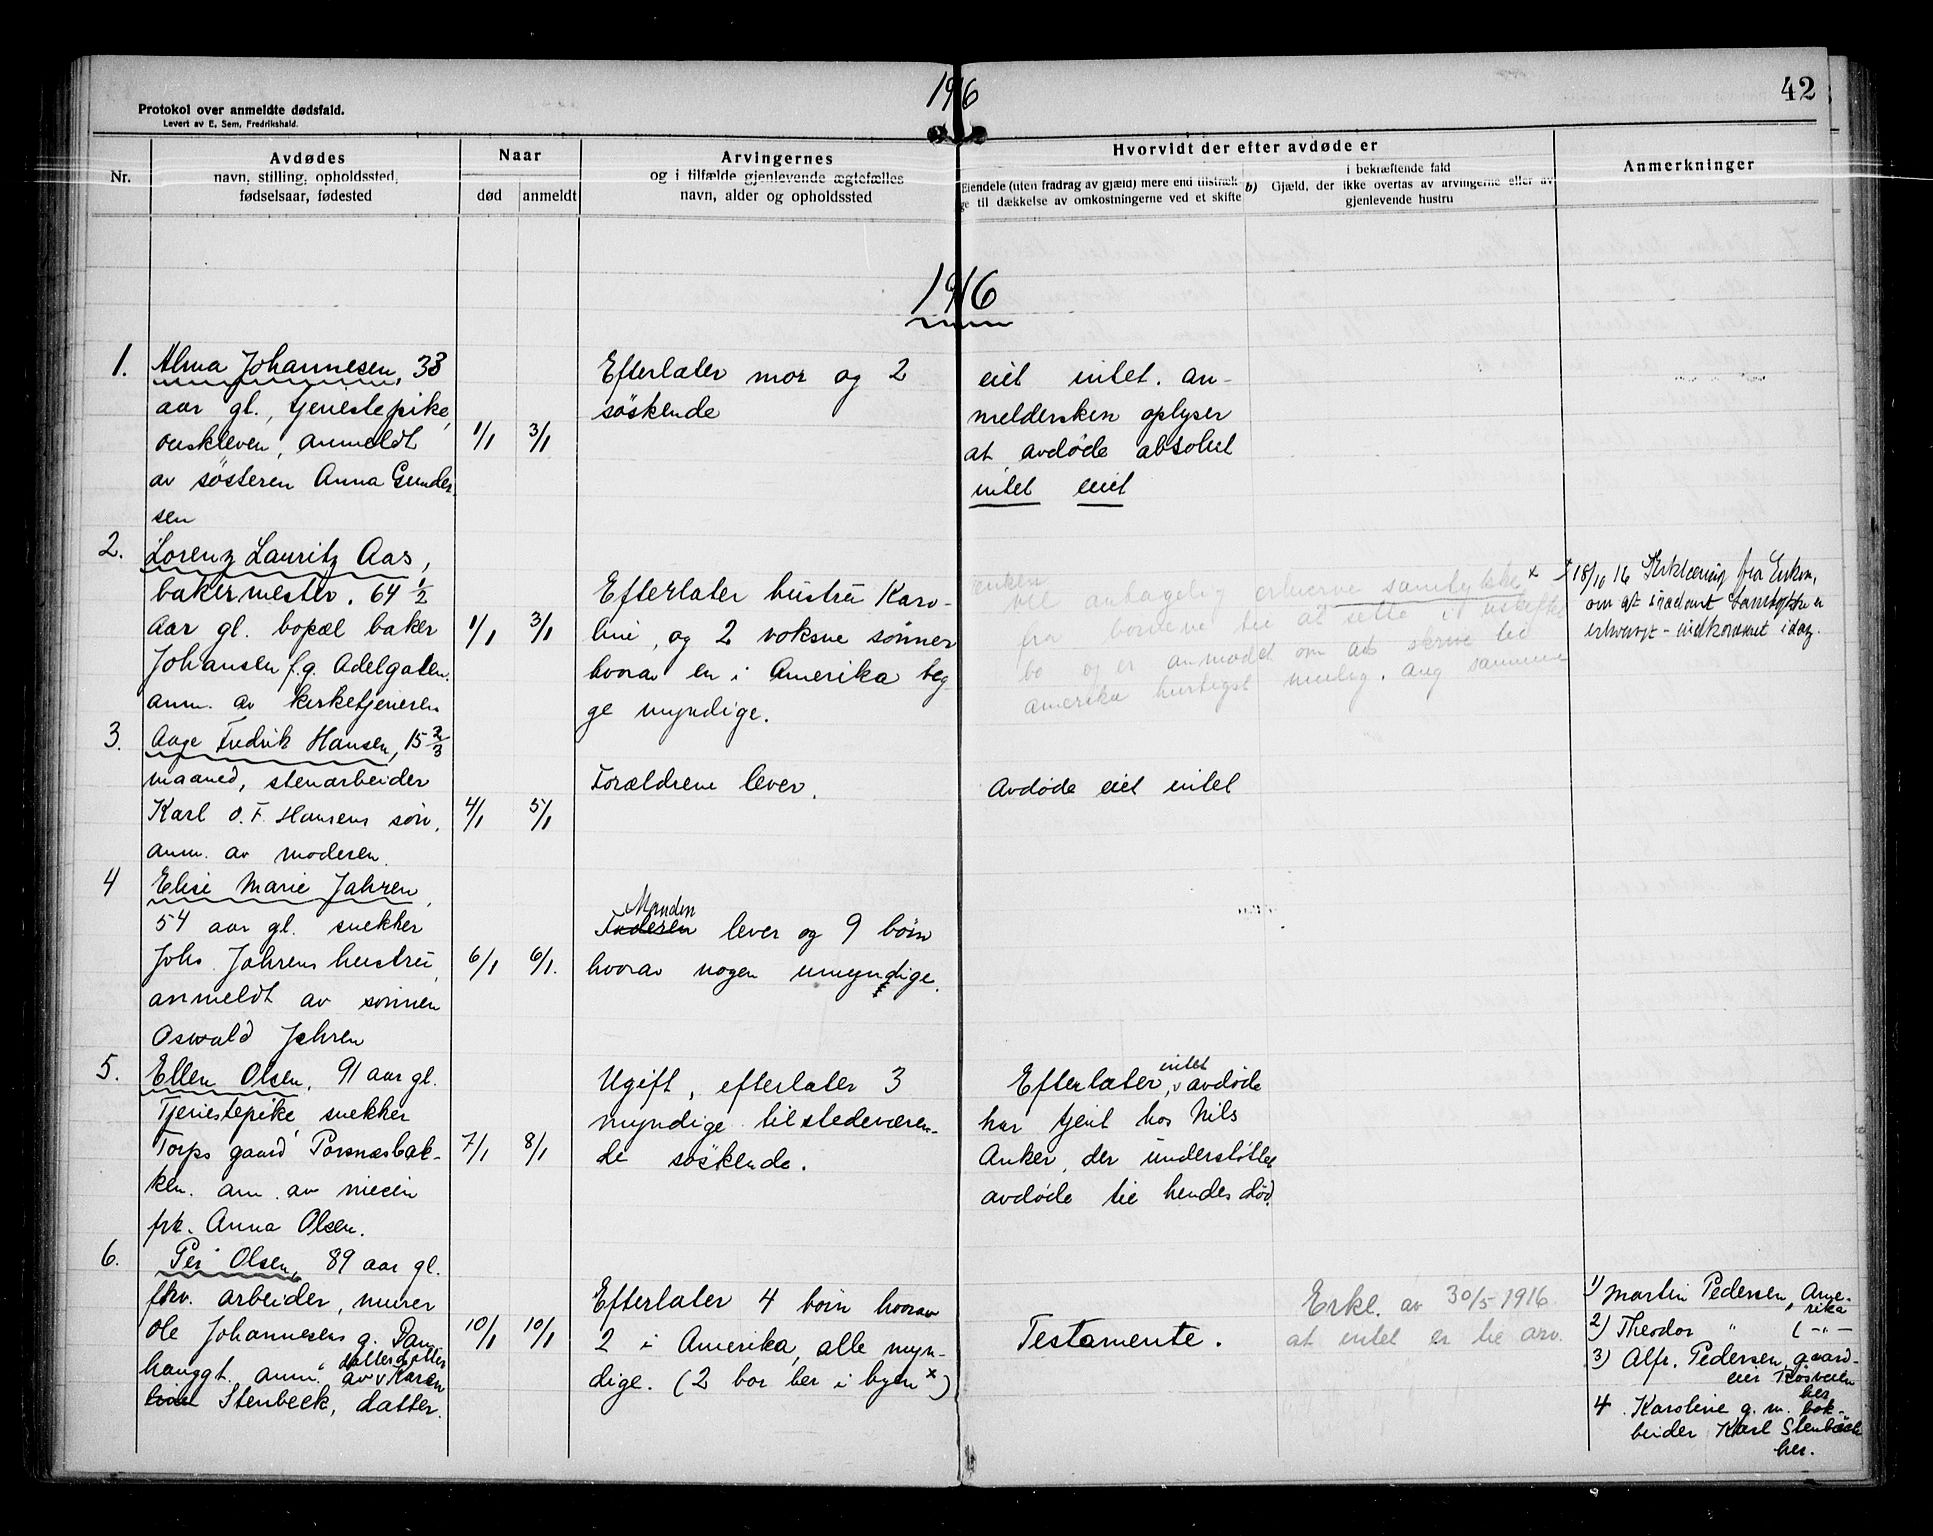 1916
42
Protokol over anmeldte dødsfald.
Levert av E. Sem, Fredrikshald.
Nr.
Avdødes
navn, stilling, opholdssted,
fødselsaar, fødested
Naar
død
anmeldt
Arvingernes
og i tilfælde gjenlevende ægtefælles
navn, alder og opholdssted
Hvorvidt der efter avdøde er
Eiendele (uten fradrag av gjæld) mere end tilstræk-
ge til dækkelse av omkostningerne ved et skifte
i bekræftende fald
b) Gjæld, der ikke overtas av arvingerne eller av
gjenlevende hustru
Anmerkninger
1916
1.
Alma Johannesen, 33
aar gl., tjenestepike,
ouskleven, anmeldt
av søsteren Anna Gunder
sen
1/1
3/1
Efterlater mor og 2
søskende
eiet intet. an-
meldersken oplyser
at avdøde absolut
intet eiet
2.
Lorenz Lauritz Aas,
bakermester. 64 1/2
aar gl. bopæl baker
Johansen f.g. Adelgaten.
anm. av kirketjeneren
1/1
3/1
Efterlater hustru Karo-
line, og 2 voksne sønner
hvorav en i Amerika beg
ge myndige.
enken
vil antagelig erhverve samtykke x
fra børnene til at sitte i uskiftet
bo og er anmodet om at skrive til
amerika hurtigst mulig. ang samme
x 18/10 16 Erklæring fra Enken,
om at saadant samtykke er
erhvervet - indkommet idag.
3.
Aage Fredrik Hansen, 15 2/3
maaned, stenarbeider
Karl O. F. Hansens søn,
anm. av moderen.
4/1
5/1
Forældrene lever.
Avdøde eiet intet
4
Elise Marie Jahren,
54 aar gl. snekker
Johs. Jahrens hustru,
anmeldt av sønnen
Oswald Jahren
6/1
6/1.
Manden
Faderen lever og 9 børn
hvorav nogen umyndige.
5.
Ellen Olsen, 91 aar gl.
Tjenestepike, snekker
Torps gaard Porsnæsbak-
ken. anm. av niecen
frk. Anna Olsen.
7/1
8/1
Ugift, efterlater 3
myndige tilstedeværen-
de søskende.
intet
Efterlater, v avdøde
har tjent hos Nils
Anker, der understøttet
avdøde til hendes død.
6.
Per Olsen, 89 aar gl.
fhv. arbeider, murer
Ole Johannesens g. Dam
datterdatter
hauggt. anm. av v Karen
Stenbeck, datter.
10/1
10/1
Efterlater 4 børn hvorav
2 i Amerika, alle myn-
dige. (2 bor her i byen x)
Testamente.
Erkl. av 30/5-1916
at intet er til arv.
1) Martin Pedersen, Ame-
rika
2) Theodor " (-"-
3) Alfr. Pedersen, gaard-
eier Kosveien
her
4. Karoline g. m. bok-
beider Karl Stenbæck
her.